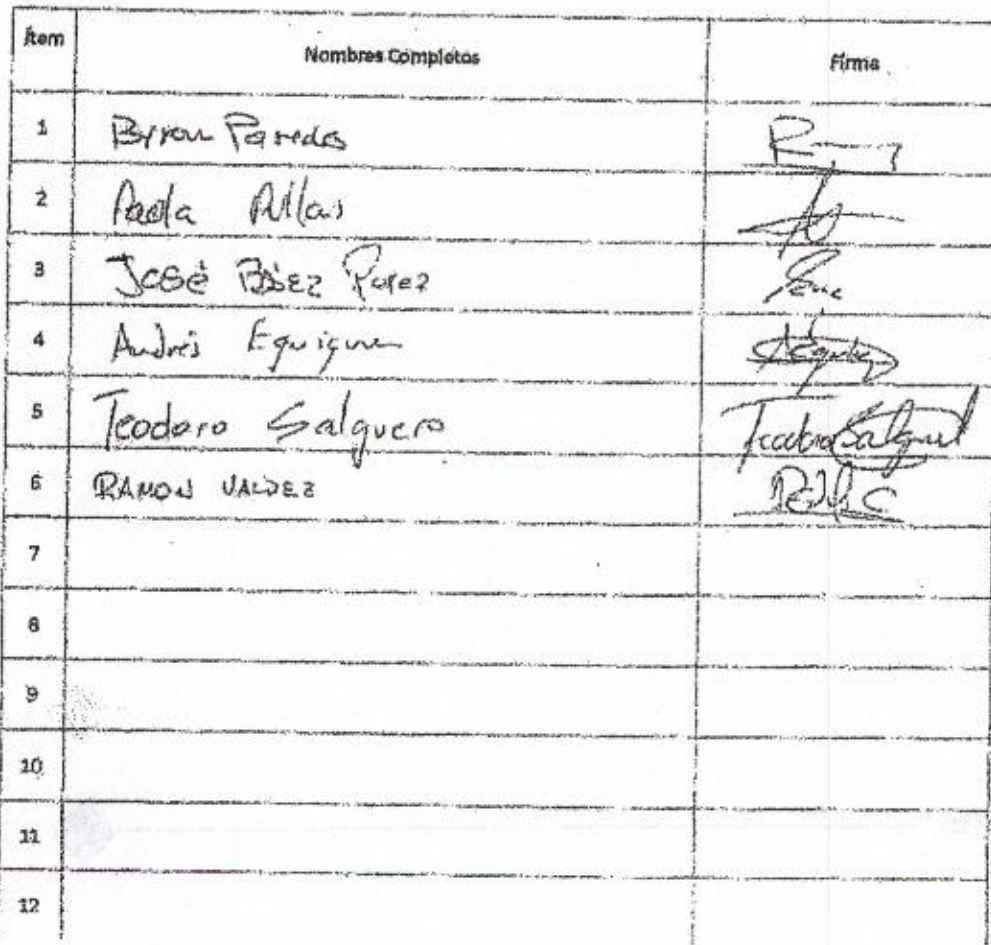 Ítem Nombres Completos Firma
1 Byron Paredes
2 Paola
3 José Báez Perez
4 Andrés Eguiguren
5 Teodoro Salguero Teodoro Salguero
6 RAMON VALDEZ
7
8
9
10
11
12